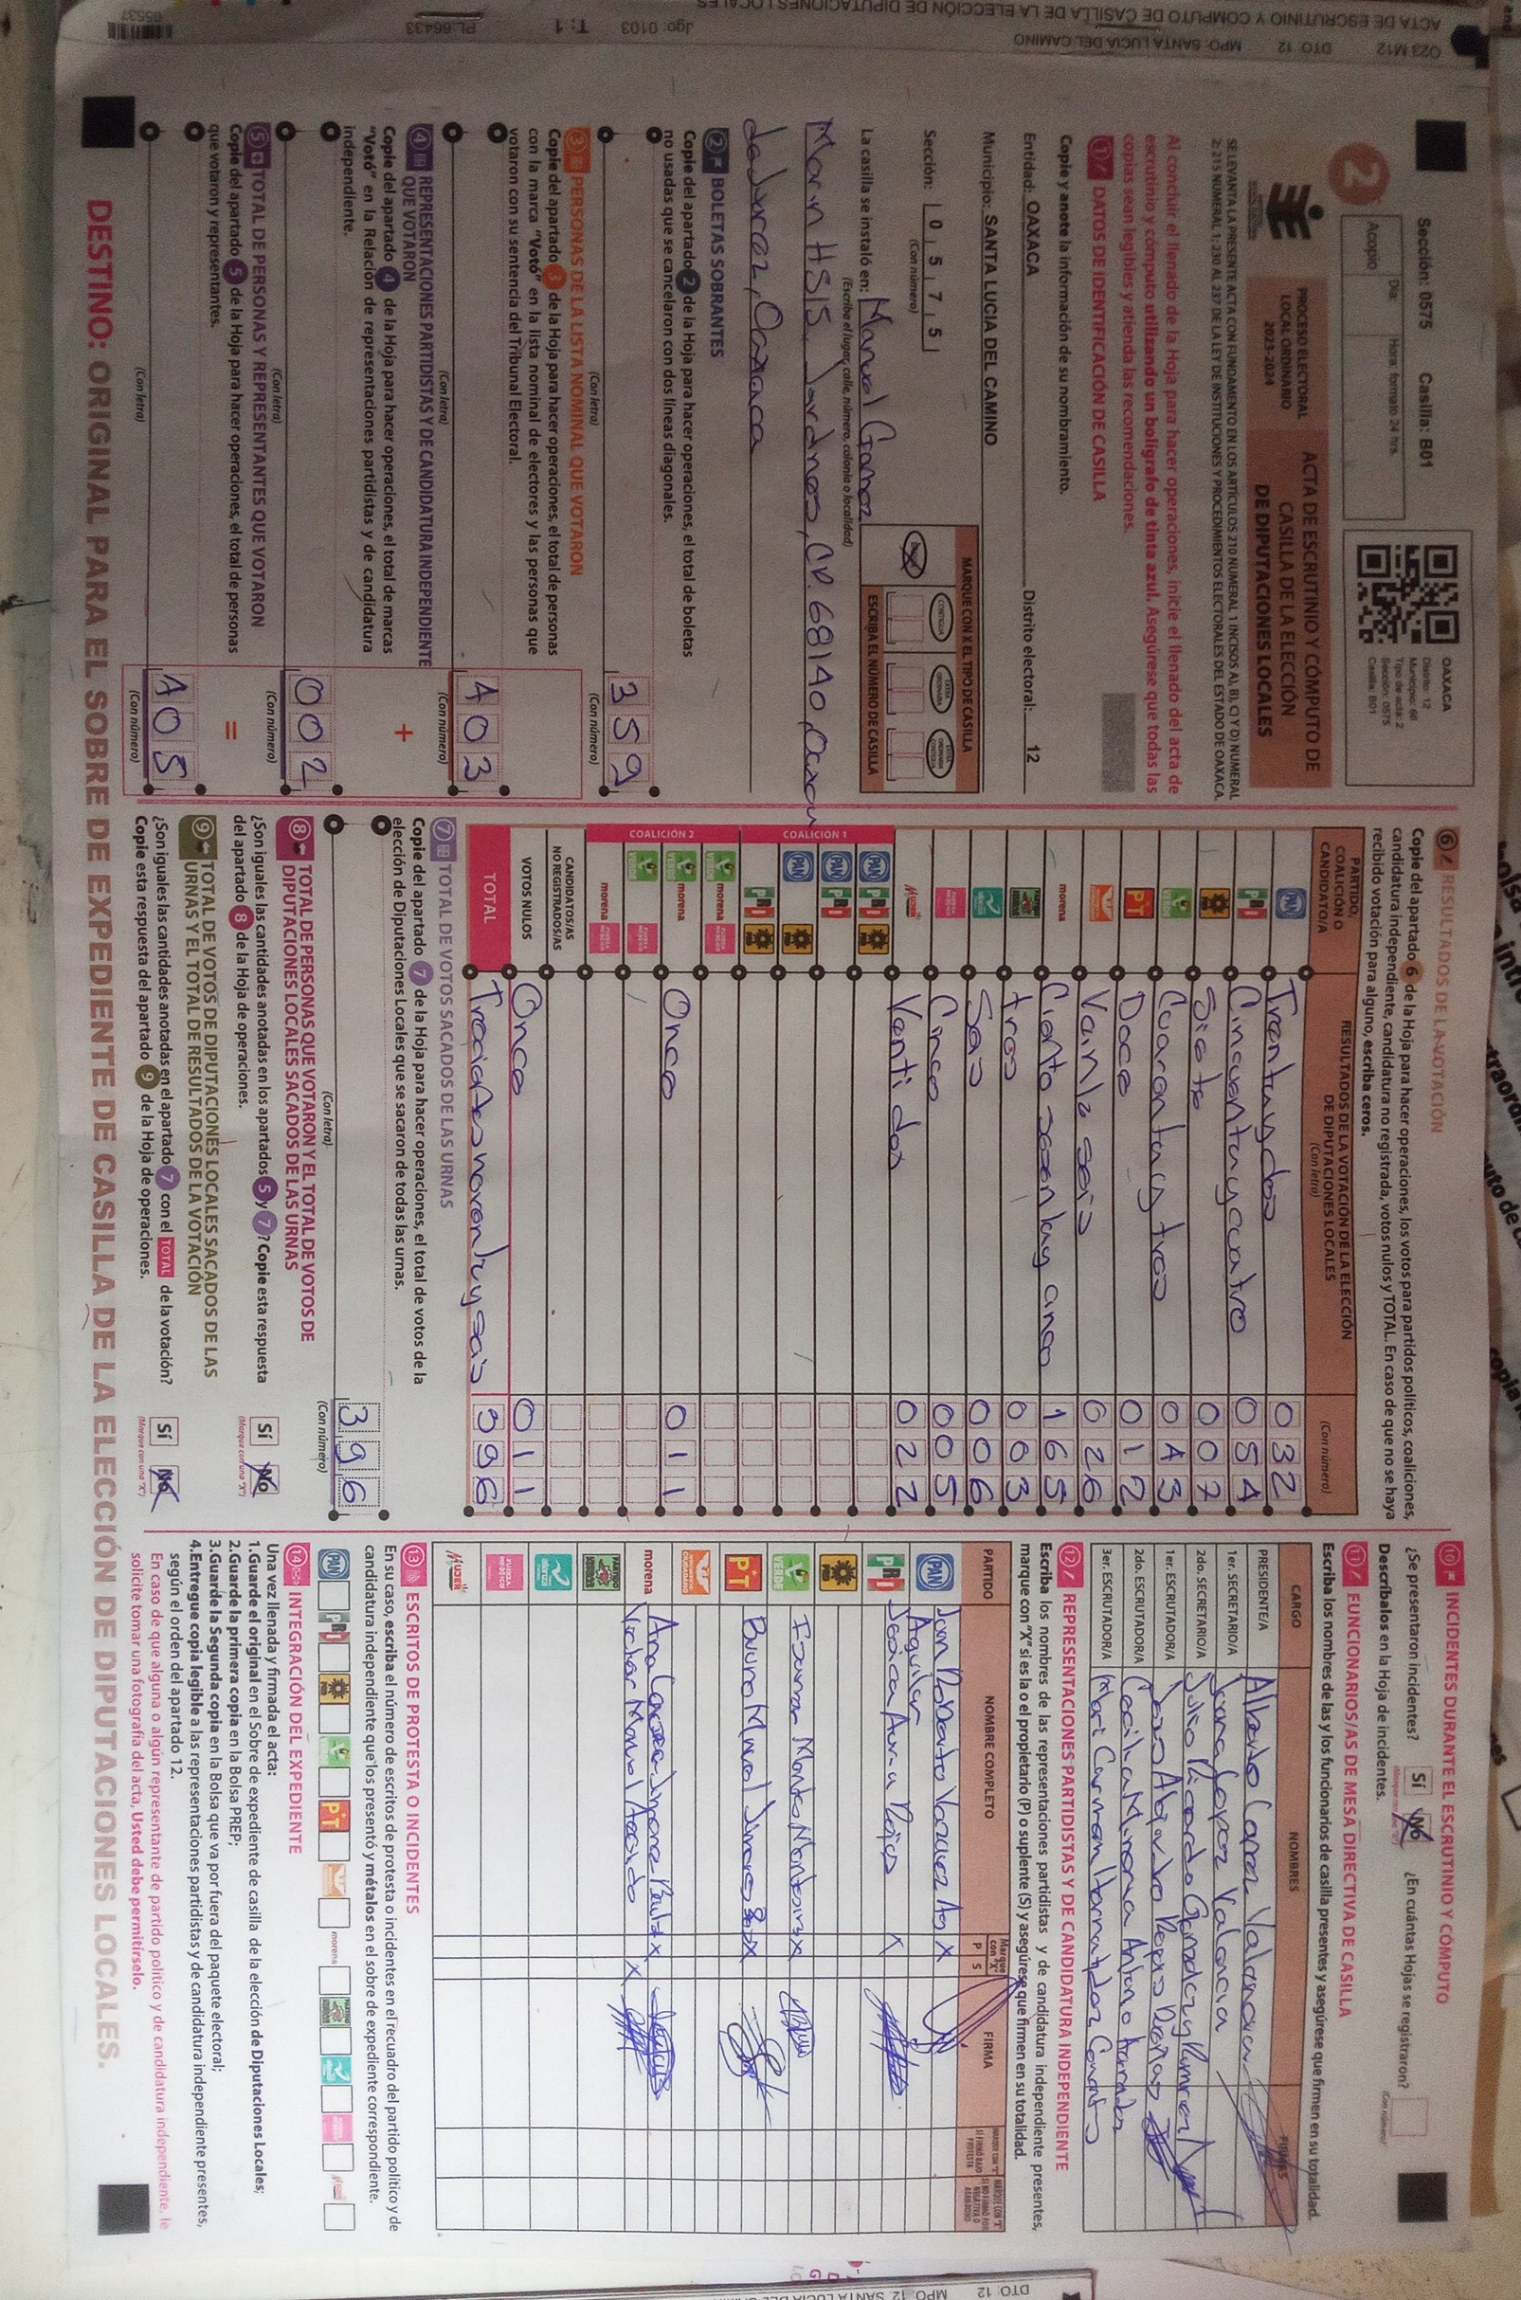 Sección: 0575 Casilla: B01
2
Acopio
Día:
Hora: formato 24 hrs.
OAXACA
Distrito: 12
Municipio: 68
Tipo de acta: 2
Sección: 0575
Casilla: B01
PROCESO ELECTORAL
LOCAL ORDINARIO
2023-2024
ACTA DE ESCRUTINIO Y CÓMPUTO DE
CASILLA DE LA ELECCIÓN
DE DIPUTACIONES LOCALES
SE LEVANTA LA PRESENTE ACTA CON FUNDAMENTO EN LOS ARTÍCULOS 210 NUMERAL 1 INCISOS A), B), C) Y D) NUMERAL
2; 215 NUMERAL 1; 230 AL 237 DE LA LEY DE INSTITUCIONES Y PROCEDIMIENTOS ELECTORALES DEL ESTADO DE OAXACA.
Al concluir el llenado de la Hoja para hacer operaciones, inicie el llenado del acta de
escrutinio y cómputo utilizando un bolígrafo de tinta azul. Asegúrese que todas las
copias sean legibles y atienda las recomendaciones.
1 DATOS DE IDENTIFICACIÓN DE CASILLA
Copie y anote la información de su nombramiento.
Entidad: OAXACA Distrito electoral: 12
Municipio: SANTA LUCIA DEL CAMINO
Sección: 0 5 7 5
(Con número)
MARQUE CON X EL TIPO DE CASILLA
ESCRIBA EL NÚMERO DE CASILLA
La casilla se instaló en: Manuel Gomez
(Escriba el lugar, calle, número, colonia o localidad)
Marin H515, Jardines, CP. 68140, Oaxaca
de Juarez, Oaxaca
2 BOLETAS SOBRANTES
Copie del apartado 2 de la Hoja para hacer operaciones, el total de boletas
no usadas que se cancelaron con dos líneas diagonales.
359
(Con letra) (Con número)
3 PERSONAS DE LA LISTA NOMINAL QUE VOTARON
Copie del apartado 3 de la Hoja para hacer operaciones, el total de personas
con la marca "Votó" en la lista nominal de electores y las personas que
votaron con su sentencia del Tribunal Electoral.
403
(Con letra) (Con número)
4 REPRESENTACIONES PARTIDISTAS Y DE CANDIDATURA INDEPENDIENTE
QUE VOTARON
+
Copie del apartado 4 de la Hoja para hacer operaciones, el total de marcas
"Votó" en la Relación de representaciones partidistas y de candidatura
independiente.
002
(Con letra) (Con número)
5 TOTAL DE PERSONAS Y REPRESENTANTES QUE VOTARON
=
Copie del apartado 5 de la Hoja para hacer operaciones, el total de personas
que votaron y representantes.
405
(Con letra) (Con número)
6 RESULTADOS DE LA VOTACIÓN
Copie del apartado 6 de la Hoja para hacer operaciones, los votos para partidos políticos, coaliciones,
candidatura independiente, candidatura no registrada, votos nulos y TOTAL. En caso de que no se haya
recibido votación para alguno, escriba ceros.
PARTIDO, COALICIÓN O CANDIDATO/A
RESULTADOS DE LA VOTACIÓN DE LA ELECCIÓN
DE DIPUTACIONES LOCALES
(Con letra) (Con número)
PAN Trentuydos 032
PRI Cincuentaycuatro 054
PRD Siete 007
VERDE Cuarentaytres 043
PT Doce 012
Vainte seis 026
morena Ciento sesentay cinco 165
tres 003
Seis 006
Cinco 005
Mujer Venti dos 022
COALICIÓN 1
COALICIÓN 2
VERDE morena Once 011
CANDIDATOS/AS
NO REGISTRADOS/AS
VOTOS NULOS Once 011
TOTAL Trecientosnoventaysais 396
7 TOTAL DE VOTOS SACADOS DE LAS URNAS
Copie del apartado 7 de la Hoja para hacer operaciones, el total de votos de la
elección de Diputaciones Locales que se sacaron de todas las urnas.
396
(Con letra) (Con número)
8 TOTAL DE PERSONAS QUE VOTARON Y EL TOTAL DE VOTOS DE
DIPUTACIONES LOCALES SACADOS DE LAS URNAS
¿Son iguales las cantidades anotadas en los apartados 5 y 7? Copie esta respuesta
del apartado 8 de la Hoja de operaciones.
Sí No
(Marque con una "X")
9 TOTAL DE VOTOS DE DIPUTACIONES LOCALES SACADOS DE LAS
URNAS Y EL TOTAL DE RESULTADOS DE LA VOTACIÓN
¿Son iguales las cantidades anotadas en el apartado 7 con el TOTAL de la votación?
Copie esta respuesta del apartado 9 de la Hoja de operaciones.
Sí No
(Marque con una "X")
10 INCIDENTES DURANTE EL ESCRUTINIO Y CÓMPUTO
¿Se presentaron incidentes? Sí No ¿En cuántas Hojas se registraron?
(Con número)
Descríbalos en la Hoja de incidentes.
11 FUNCIONARIOS/AS DE MESA DIRECTIVA DE CASILLA
Escriba los nombres de las y los funcionarios de casilla presentes y asegúrese que firmen en su totalidad.
CARGO NOMBRES FIRMAS
PRESIDENTE/A Alberto Lopez Valencia
1er. SECRETARIO/A Lopez Valencia
2do. SECRETARIO/A Ricardo Gonzalez y Ramirez
1er. ESCRUTADOR/A Alejandro
2do. ESCRUTADOR/A Cecilia Minerva Antonio
3er. ESCRUTADOR/A Mari Carmen Hernandez
12 REPRESENTACIONES PARTIDISTAS Y DE CANDIDATURA INDEPENDIENTE
Escriba los nombres de las representaciones partidistas y de candidatura independiente presentes,
marque con "X" si es la o el propietario (P) o suplente (S) y asegúrese que firmen en su totalidad.
PARTIDO NOMBRE COMPLETO Marque con "X" P S FIRMA
PAN Roberto Vazquez X
Aguilar
PRI Jesica X
PRD
VERDE Montes X
PT X
morena Ana X
Victor Manuel Acevedo X
Mujer
13 ESCRITOS DE PROTESTA O INCIDENTES
En su caso, escriba el número de escritos de protesta o incidentes en el recuadro del partido político y de
candidatura independiente que los presentó y métalos en el sobre de expediente correspondiente.
14 INTEGRACIÓN DEL EXPEDIENTE
Una vez llenada y firmada el acta:
1.Guarde el original en el Sobre de expediente de casilla de la elección de Diputaciones Locales;
2.Guarde la primera copia en la Bolsa PREP;
3.Guarde la Segunda copia en la Bolsa que va por fuera del paquete electoral;
4.Entregue copia legible a las representaciones partidistas y de candidatura independiente presentes,
según el orden del apartado 12.
En caso de que alguna o algún representante de partido político y de candidatura independiente, le
solicite tomar una fotografía del acta, Usted debe permitírselo.
DESTINO: ORIGINAL PARA EL SOBRE DE EXPEDIENTE DE CASILLA DE LA ELECCIÓN DE DIPUTACIONES LOCALES.
ACTA DE ESCRUTINIO Y COMPUTO DE CASILLA DE LA ELECCIÓN DE DIPUTACIONES LOCALES
023 M12 DTO: 12 MPO: SANTA LUCIA DEL CAMINO
Jgo: 0103 T: 1 PL:66433
65537
DTO: 12